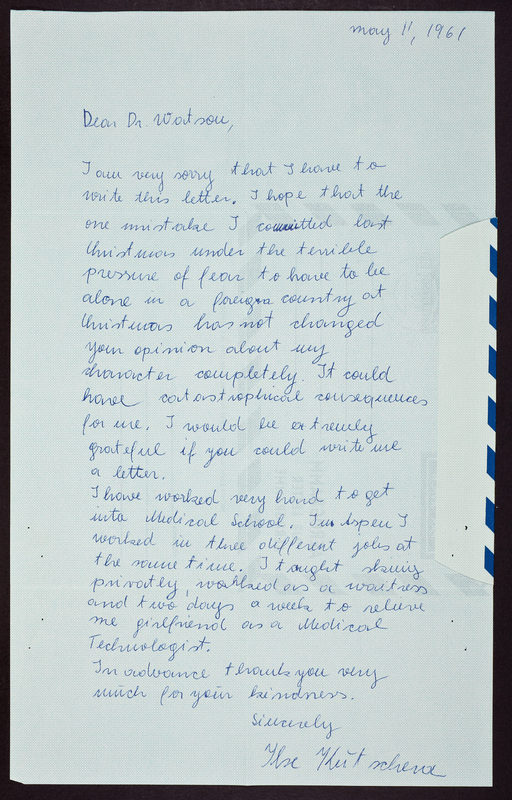 may 11, 1961
Dear Dr. Watson,
I am very sorry that I have to
write this letter. I hope that the
one mistake I committed last
Christmas under the terrible
pressure of fear to have to be
alone in a foreign country at
Christmas has not changed
your opinion about my
character completely. It could
have catastrophical consequences
for me. I would be extremly
grateful if you could write me
a letter.
I have worked very hard to get
into Medical School. In Aspen I
worked in three different jobs at
the same time. I taught skiing
privatly, worked as a waitress
and two days a week to relieve
me girlfriend as a Medical
Technologist.
In advance thank you very
much for your kindness.
Sincerely
Ilse